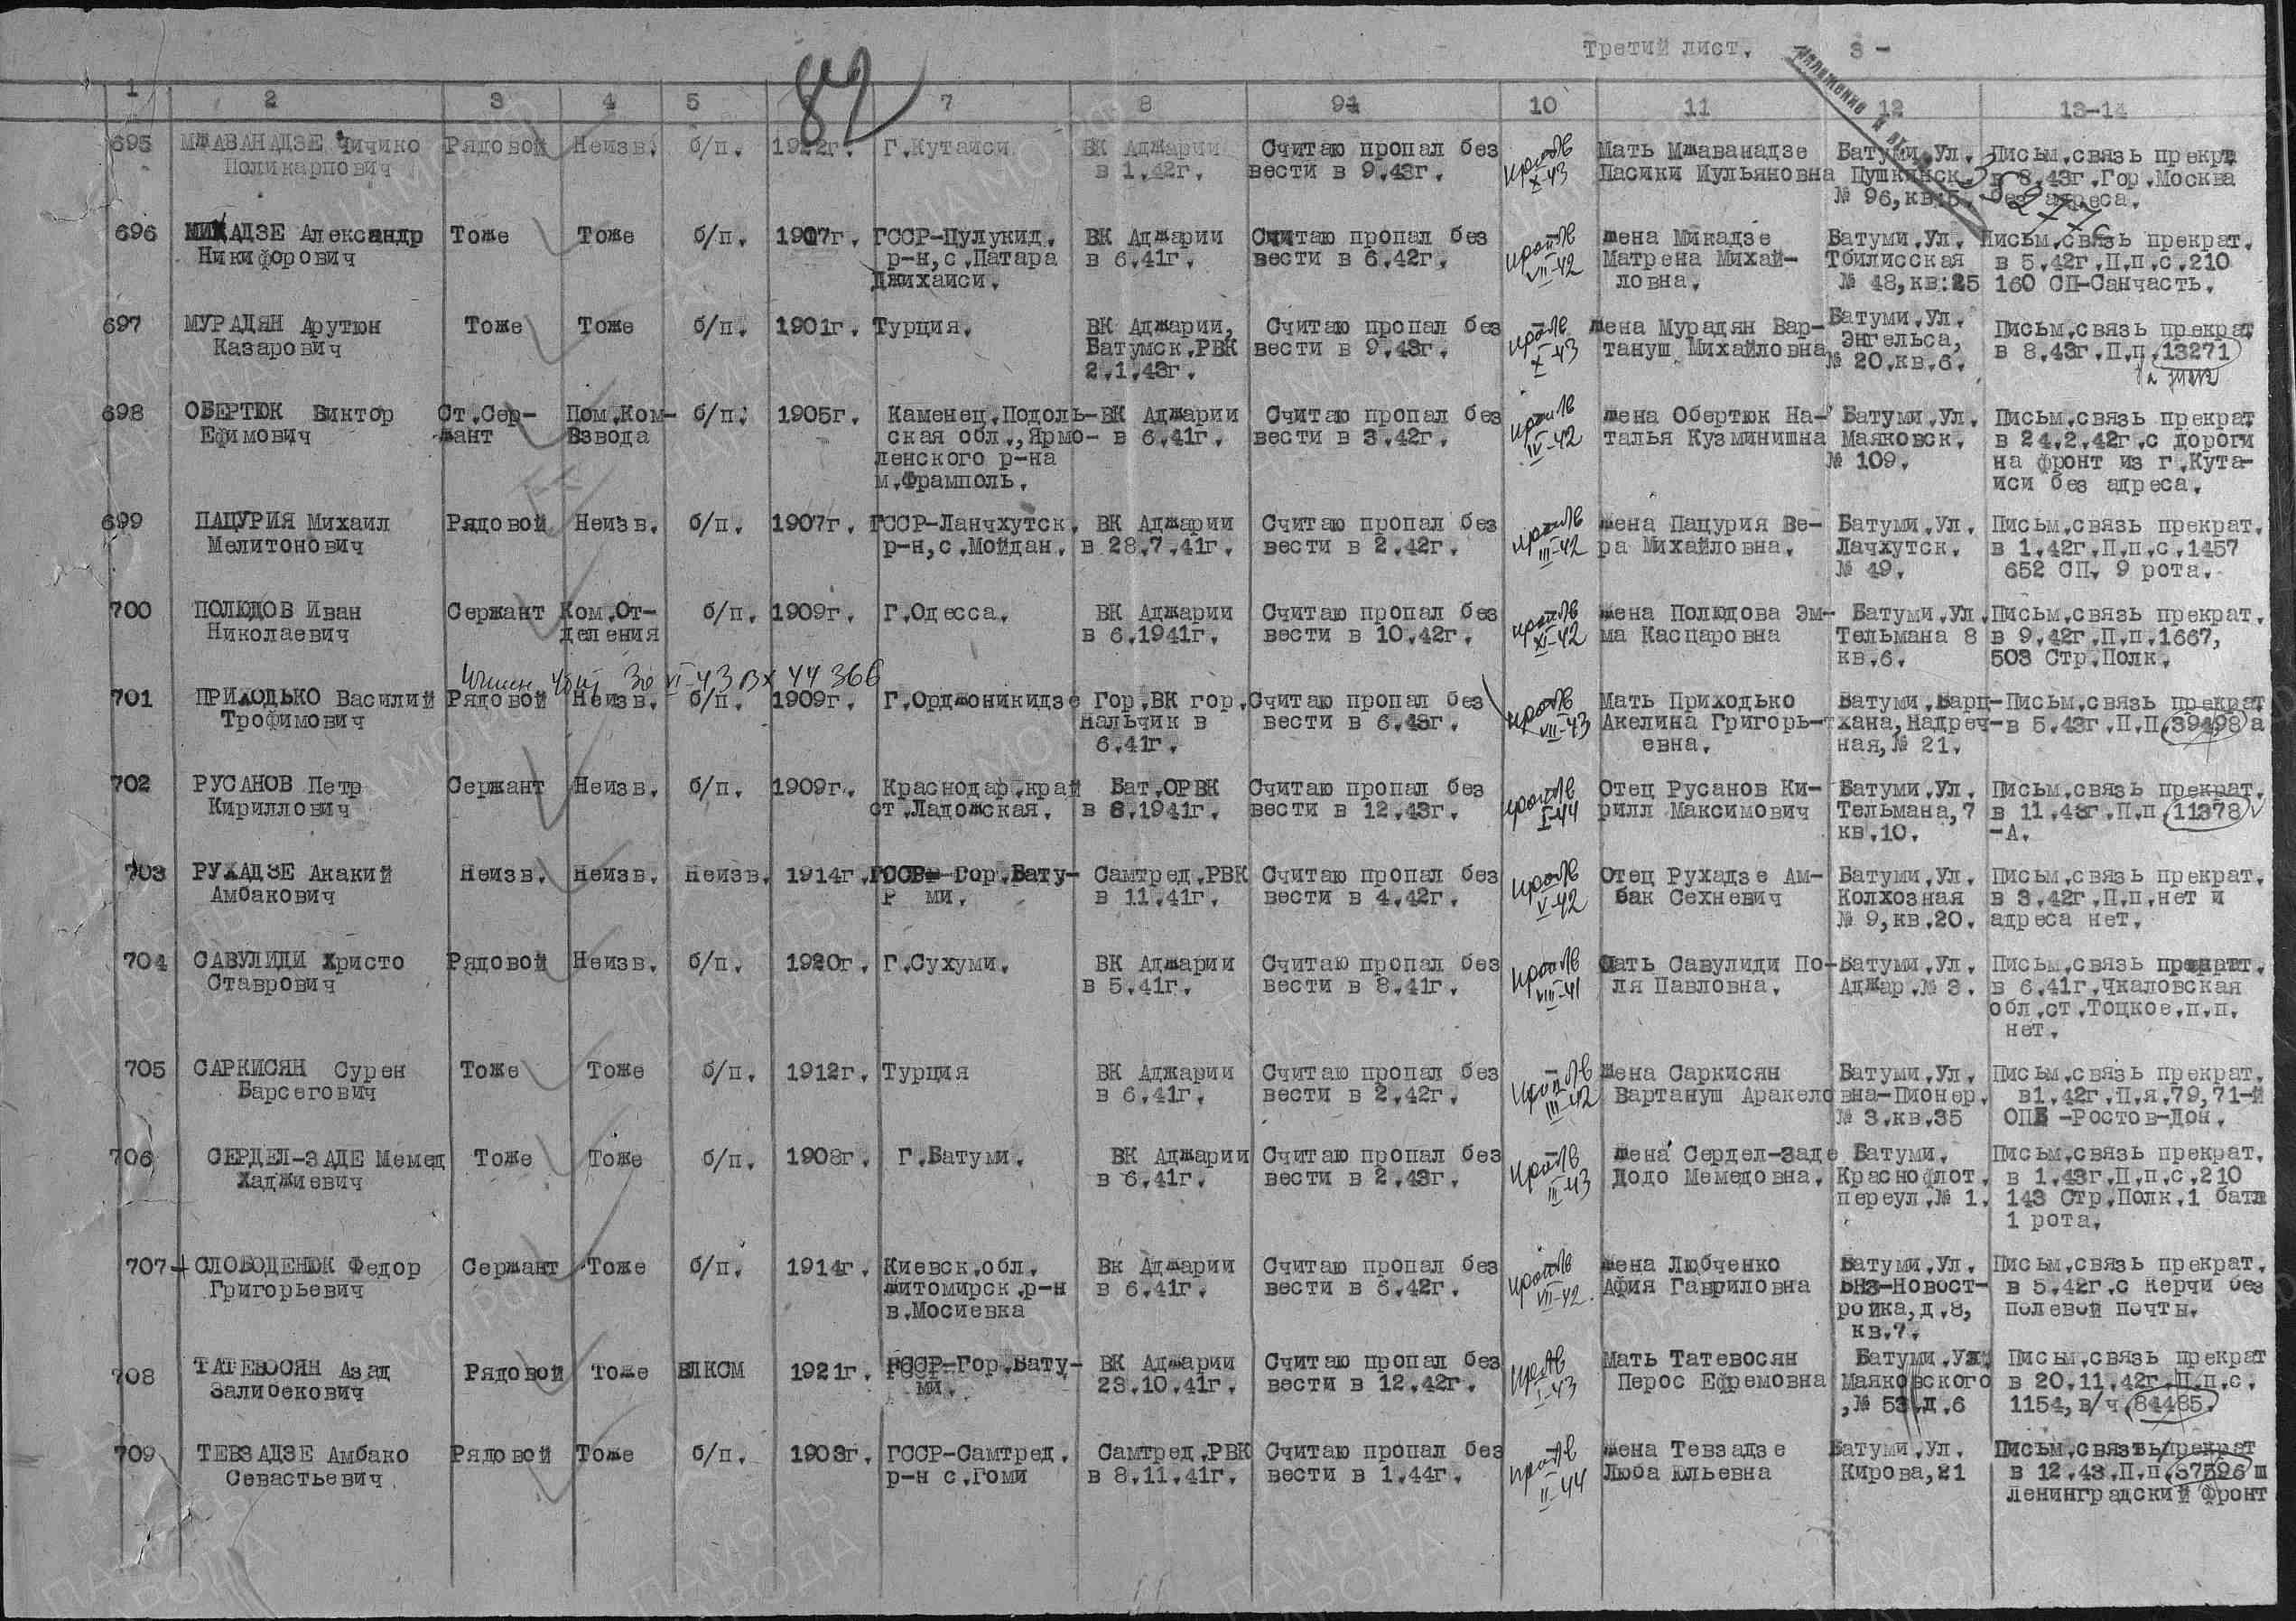 Третий лист. - 3 -
82
1 2 3 4 5 7 8 9 10 11 12 13-14
695 МЖАВАНАДЗЕ Чичико Рядовой Неизв. б/п. 1922г. Г.Кутаиси ВК Аджарии Считаю пропал без Мать Мжаванадзе Батуми.Ул. Письм.связь прекрт
Поликарпович в 1.42г. вести в 9.43г. X-43 Пасики Иульяновна Пушкинск. в 8.43г.Гор.Москва
№ 96,кв.5. без адреса.
696 МИКАДЗЕ Александр Тоже Тоже б/п. 1907г. ГССР-Цулукид. ВК Аджарии Считаю пропал без жена Микадзе Батуми.Ул. Письм.связь прекрат.
Никифорович р-н,с.Патара в 6.41г. вести в 6.42г. VII-42 Матрена Михай- Тбилисская в 5.42г.П.п.с.210
Джихаиси. ловна. № 48,кв:25 160 СП-Санчасть.
697 МУРАДЯН Арутюн Тоже Тоже б/п. 1901г. Турция. ВК Аджарии, Считаю пропал без жена Мурадян Вар- Батуми.Ул. Письм.связь прекрат
Казарович Батумск.РВК вести в 9.43г. X-43 тануш Михайловна Энгельса, в 8.43г.П.п.13271
2.1.43г. № 20.кв.6.
698 ОБЕРТЮК Виктор Ст.Сер- Пом.Ком- б/п. 1905г. Каменец.Подоль- ВК Аджарии Считаю пропал без жена Обертюк На- Батуми.Ул. Письм.связь прекрат
Ефимович жант Взвода ская обл.,Ярмо- в 6.41г. вести в 3.42г. IV-42 талья Кузминишна Маяковск. в 24.2.42г.с дороги
ленского р-на № 109. на фронт из г.Кута-
м.Фрамполь. иси без адреса.
699 ПАЦУРИЯ Михаил Рядовой Неизв. б/п. 1907г. ГССР-Ланчхутск. ВК Аджарии Считаю пропал без жена Пацурия Ве- Батуми.Ул. Письм.связь прекрат.
Мелитонович р-н,с.Мойдан. в 28.7.41г. вести в 2.42г. III-42 ра Михайловна. Лачхутск. в 1.42г.П.п.с.1457
№ 49. 652 СП. 9 рота.
700 ПОЛЮДОВ Иван Сержант Ком.От- б/п. 1909г. Г.Одесса. ВК Аджарии Считаю пропал без жена Полюдова Эм- Батуми.Ул. Письм.связь прекрат.
Николаевич деления в 6.1941г. вести в 10.42г. XI-42 ма Каспаровна Тельмана 8 в 9.42г.П.п.1667,
кв.6. 503 Стр.Полк.
VI-43 вх 44366
701 ПРИХОДЬКО Василий Рядовой Неизв. б/п. 1909г. Г.Орджоникидзе Гор.ВК гор. Считаю пропал без Мать Приходько Батуми.Барц- Письм.связь прекрат
Трофимович Нальчик в вести в 6.43г. VII-43 Акелина Григорь- хана,Надреч- в 5.43г.П.п.39498 а
6.41г. евна. ная,№ 21.
702 РУСАНОВ Петр Сержант Неизв. б/п. 1909г. Краснодар.край Бат.ОРВК Считаю пропал без Отец Русанов Ки- Батуми.Ул. Письм.связь прекрат.
Кириллович ст.Ладожская. в 8.1941г. вести в 12.43г. I-44 рилл Максимович Тельмана,7 в 11.43г.П.п.11378
кв.10. -А.
703 РУХАДЗЕ Акакий Неизв. Неизв. Неизв. 1914г. ГССР-Гор.Бату- Самтред.РВК Считаю пропал без Отец Рухадзе Ам- Батуми.Ул. Письм.связь прекрат.
Амбакович ми. в 11.41г. вести в 4.42г. V-42 бак Сехневич Колхозная в 3.42г.П.п.нет и
№ 9,кв.20. адреса нет.
704 САВУЛИДИ Христо Рядовой Неизв. б/п. 1920г. Г.Сухуми. ВК Аджарии Считаю пропал без Мать Савулиди По- Батуми.Ул. Письм.связь прекрат.
Ставрович в 5.41г. вести в 8.41г. VIII-41 ля Павловна. Аджар.№ 3. в 6.41г.Чкаловская
обл.ст.Тоцкое.п.п.
нет.
705 САРКИСЯН Сурен Тоже Тоже б/п. 1912г. Турция ВК Аджарии Считаю пропал без жена Саркисян Батуми.Ул. Письм.связь прекрат.
Барсегович в 6.41г. вести в 2.42г. III-42 Вартануш Аракеловна-Пионер. в1.42г.П.я.79,71-й
№ 3.кв.35 ОПБ -Ростов-Дон.
706 СЕРДЕЛ-ЗАДЕ Мемед Тоже Тоже б/п. 1908г. Г.Батуми. ВК Аджарии Считаю пропал без жена Сердел-Заде Батуми. Письм.связь прекрат.
Хаджиевич в 6.41г. вести в 2.43г. III-43 Додо Мемедовна. Краснофлот. в 1.43г.П.п.с.210
переул.№ 1. 143 Стр.Полк.1 батл
1 рота.
707 СЛОБОДЕНЮК Федор Сержант Тоже б/п. 1914г. Киевск.обл. Вк Аджарии Считаю пропал без жена Любченко Батуми.Ул. Письм.связь прекрат.
Григорьевич житомирск.р-н в 6.41г. вести в 6.42г. VII-42. Афия Гавриловна БНЗ-Новост- в 5.42г.с Керчи без
в.Мосиевка ройка,д.8, полевой почты.
кв.7.
708 ТАТЕВОСЯН Азад Рядовой Тоже ВЛКСМ 1921г. ГССР-Гор.Бату- ВК Аджарии Считаю пропал без Мать Татевосян Батуми.Ул. Письм.связь прекрат
Залибекович ми. 23.10.41г. вести в 12.42г. I-43 Перос Ефремовна Маяковского в 20.11.42г.П.п.с.
,№ 53.д.6 1154,в/ч.84485.
709 ТЕВЗАДЗЕ Амбако Рядовой Тоже б/п. 1903г. ГССР-Самтред. Самтред.РВК Считаю пропал без жена Тевзадзе Батуми.Ул. Письм.связь прекрат
Севастьевич р-н с.Гоми в 8.11.41г. вести в 1.44г. II-44 Люба Юльевна Кирова,21 в 12.43.П.п.37526 ш
Ленинградский Фронт